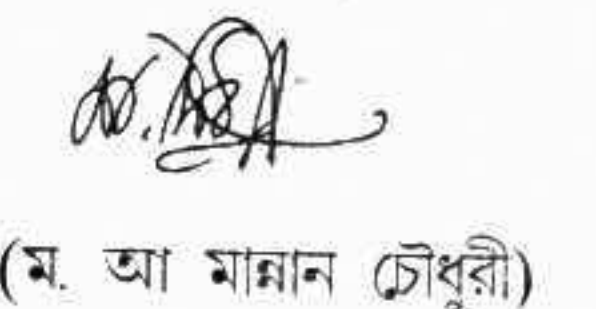 (ম. আ মান্নান চৌধুরী)